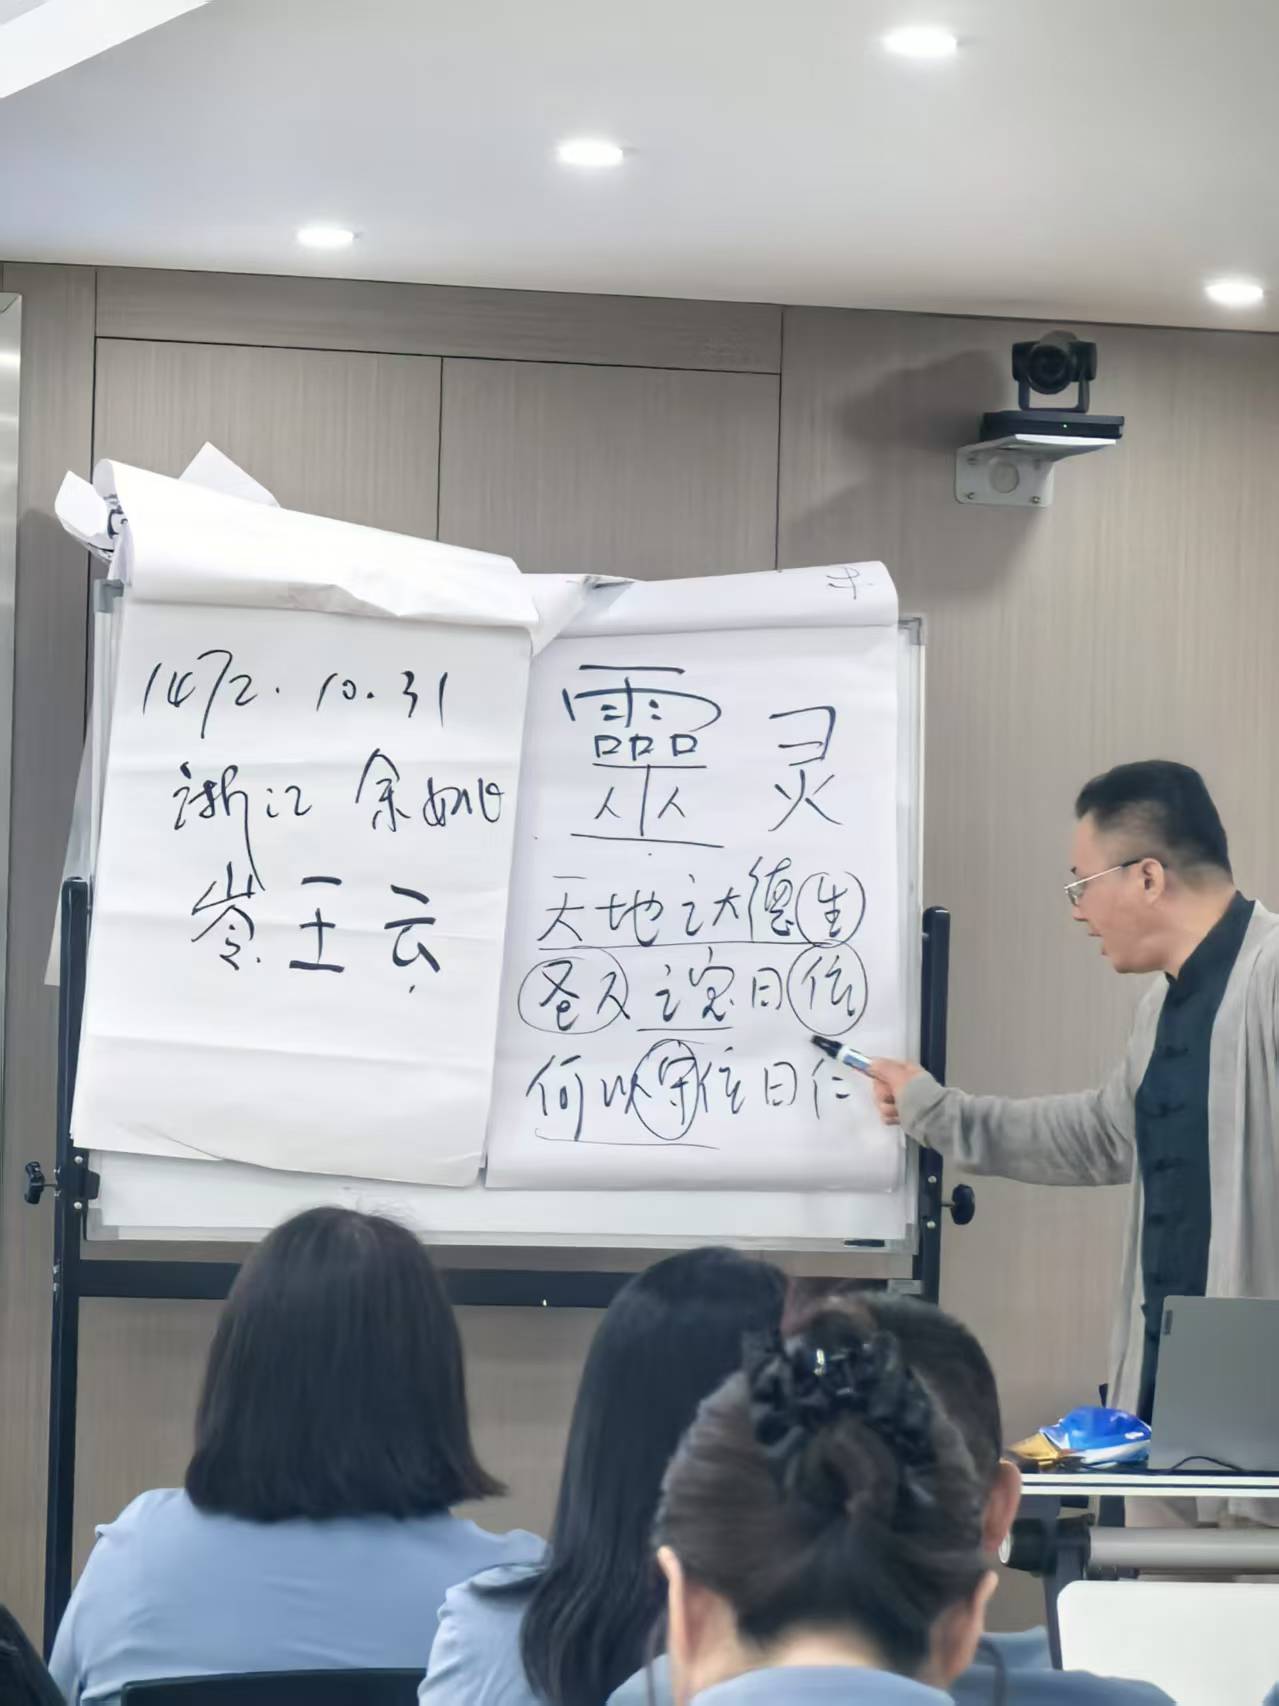 1472.10.31
浙江 余姚
岑 王云
靈 灵
天地之大德生
圣人之宝曰位
何以守位曰仁